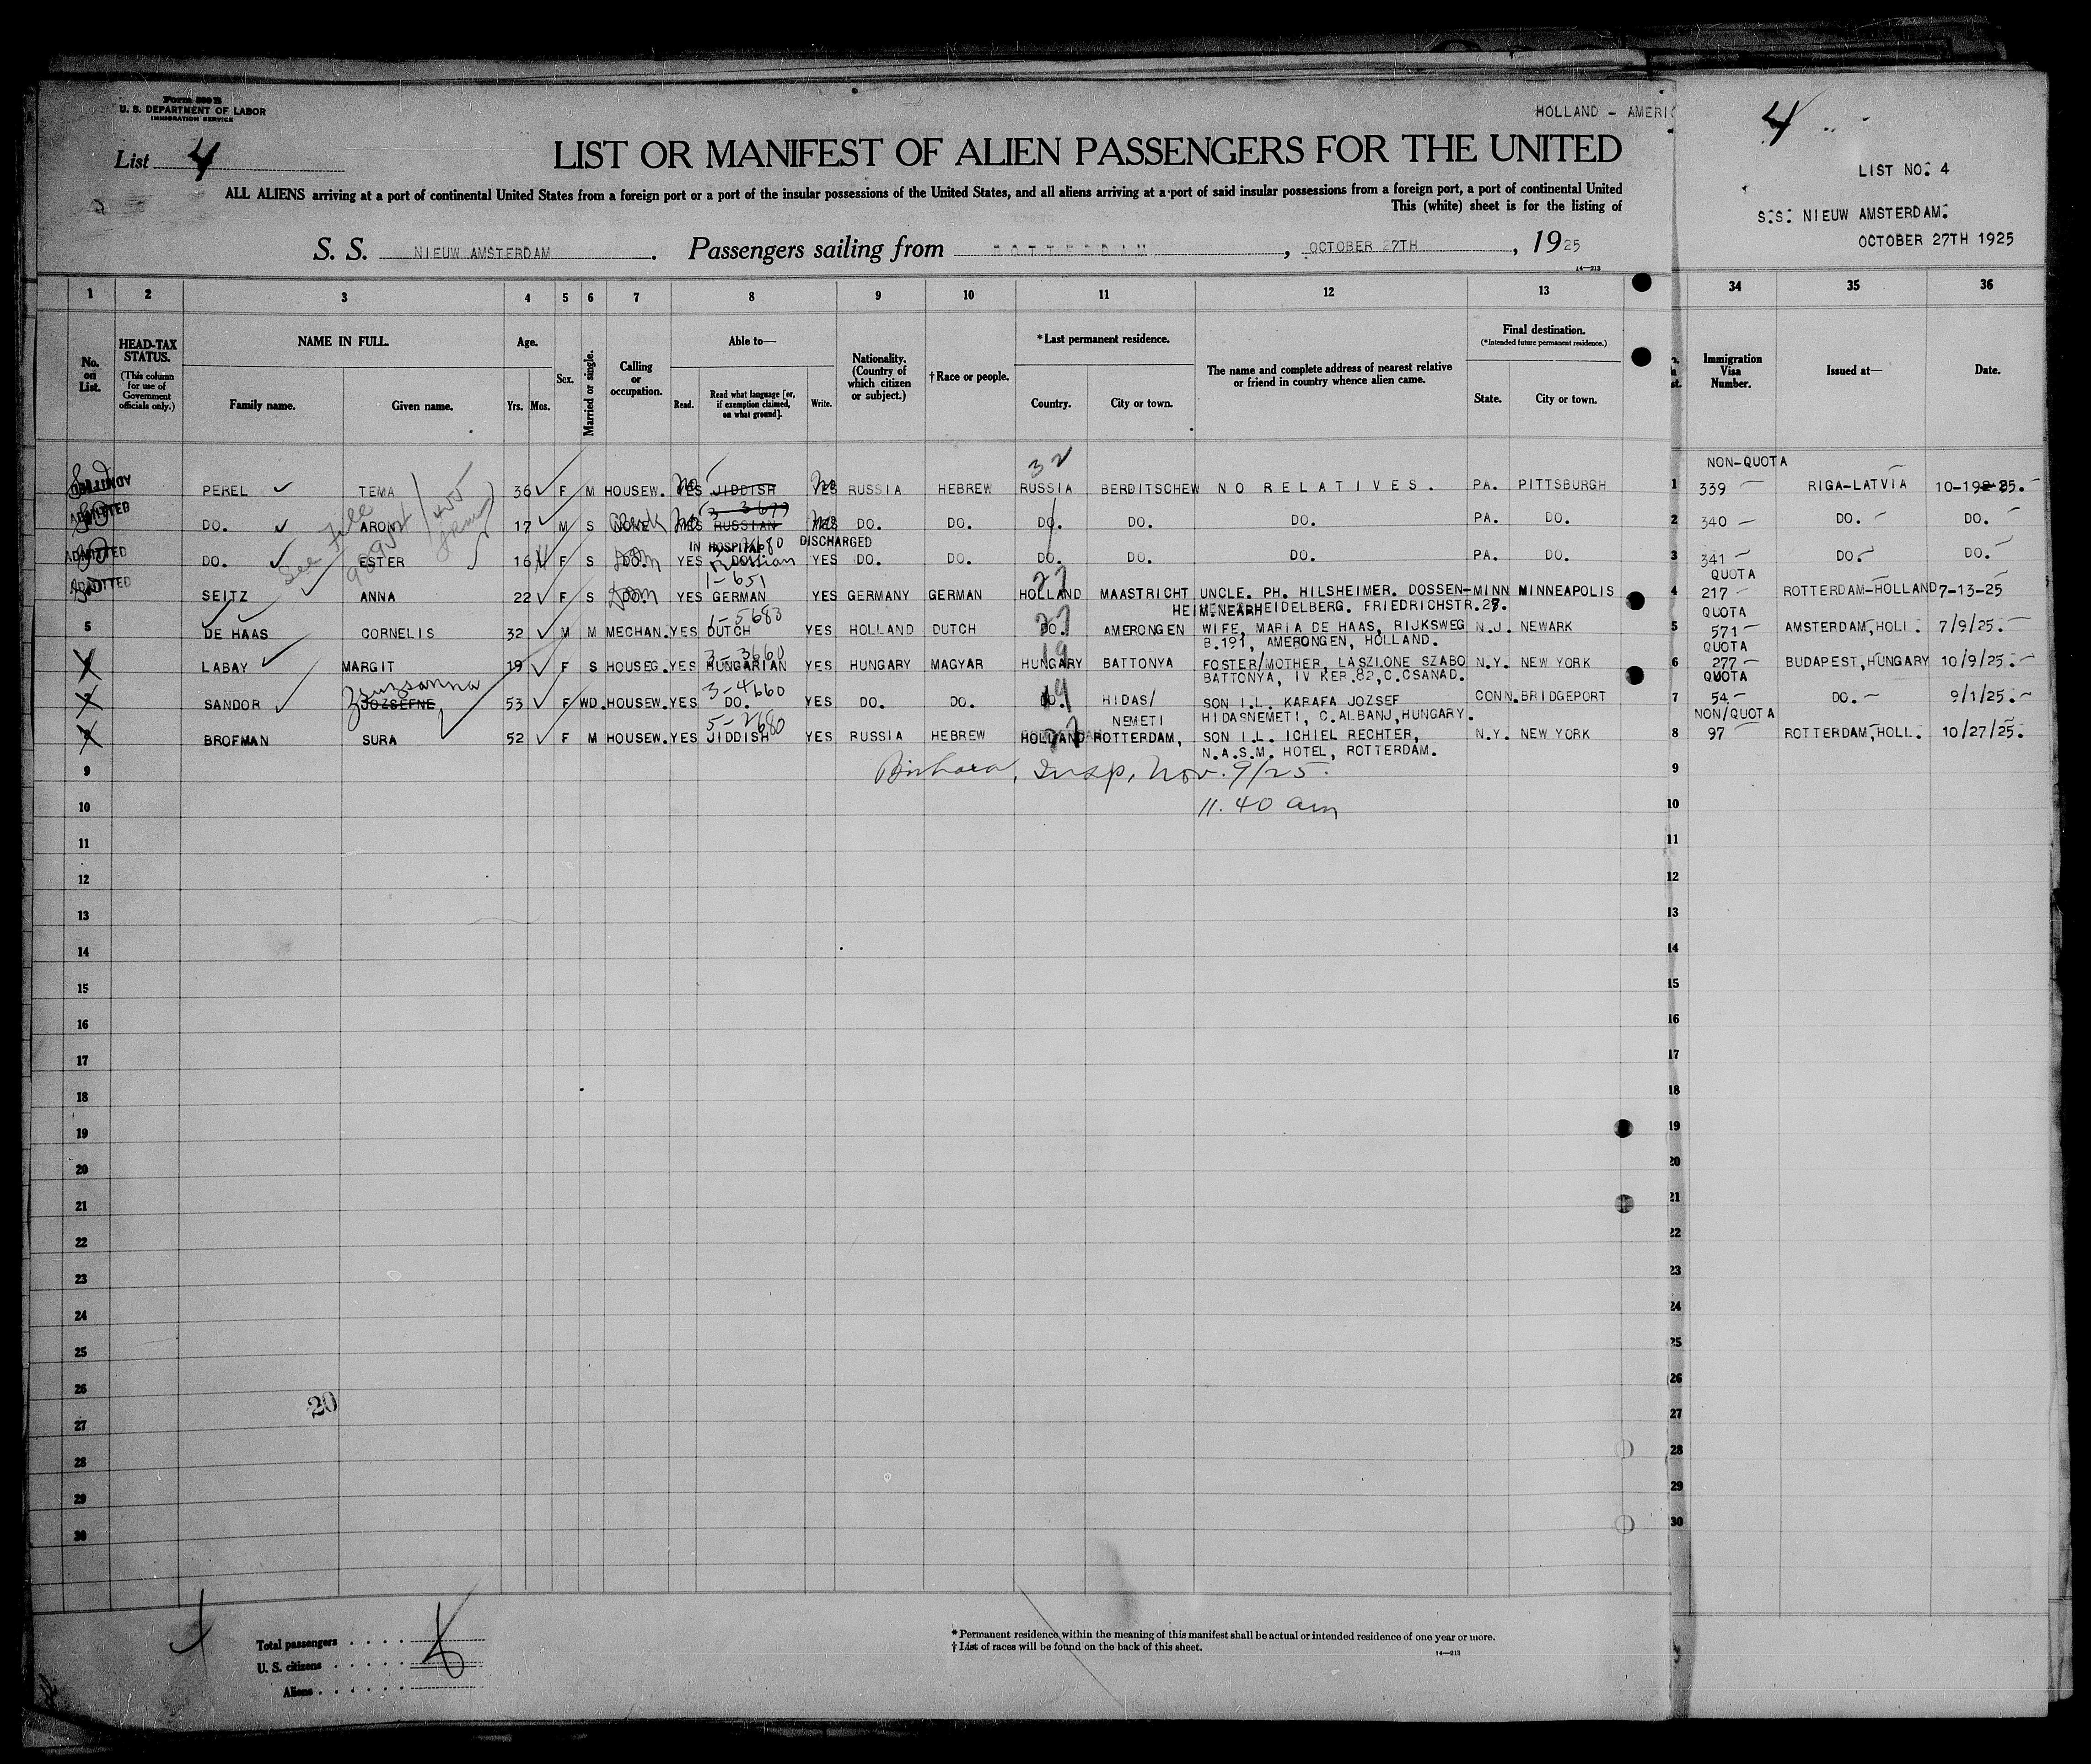 Form 500 B
U. S. DEPARTMENT OF LABOR
IMMIGRATION SERVICE
HOLLAND - AMERI
4
List 4
LIST OR MANIFEST OF ALIEN PASSENGERS FOR THE UNITED
LIST NO. 4
ALL ALIENS arriving at a port of continental United States from a foreign port or a port of the insular possessions of the United States, and all aliens arriving at a port of said insular possessions from a foreign port, a port of continental United
This (white) sheet is for the listing of
S.S. NIEUW AMSTERDAM.
OCTOBER 27TH 1925
S. S. NIEUW AMSTERDAM . Passengers sailing from ROTTERDAM , OCTOBER 27TH , 1925
14—213
1 2 3 4 5 6 7 8 9 10 11 12 13 34 35 36
No. on List.
HEAD-TAX STATUS.
(This column for use of Government officials only.)
NAME IN FULL.
Family name. Given name.
Age.
Yrs. Mos.
Sex.
Married or single.
Calling or occupation.
Able to—
Read. Read what language [or, if exemption claimed, on what ground]. Write.
Nationality. (Country of which citizen or subject.)
†Race or people.
*Last permanent residence.
Country. City or town.
The name and complete address of nearest relative or friend in country whence alien came.
Final destination.
(*Intended future permanent residence.)
State. City or town.
Immigration Visa Number.
Issued at—
Date.
32 NON-QUOTA
ADMITTED PEREL TEMA 36 F M HOUSEW. YES No JIDDISH YES No RUSSIA HEBREW RUSSIA BERDITSCHEW NO RELATIVES. PA. PITTSBURGH 1 339 RIGA-LATVIA 10-19-25.
ADMITTED DO. ARON 17 M S NONE Clerk YES No RUSSIAN YES No DO. DO. DO. DO. DO. PA. DO. 2 340 DO. DO.
See File
IN HOSPITAL DISCHARGED
ADMITTED DO. ESTER 16 F S DO. YES DO. Russian YES DO. DO. DO. DO. DO. PA. DO. 3 341 DO. DO.
1-651 27 QUOTA
ADMITTED SEITZ ANNA 22 F S DO. YES GERMAN YES GERMANY GERMAN HOLLAND MAASTRICHT UNCLE. PH. HILSHEIMER. DOSSEN- MINN MINNEAPOLIS 4 217 ROTTERDAM-HOLLAND 7-13-25
HEIM.NEARHEIDELBERG. FRIEDRICHSTR.27.
1-5683 27 QUOTA
5 DE HAAS CORNELIS 32 M M MECHAN. YES DUTCH YES HOLLAND DUTCH DO. AMERONGEN WIFE, MARIA DE HAAS, RIJKSWEG N.J. NEWARK 5 571 AMSTERDAM, HOLL. 7/9/25.
B.191, AMERONGEN, HOLLAND.
3-3660 19 QUOTA
6 LABAY MARGIT 19 F S HOUSEG. YES HUNGARIAN YES HUNGARY MAGYAR HUNGARY BATTONYA FOSTER/MOTHER, LASZLONE SZABO N.Y. NEW YORK 6 277 BUDAPEST, HUNGARY 10/9/25.
BATTONYA, IV KER.82, C.CSANAD.
Zsuzsanna 3-4660 19 QUOTA
7 SANDOR JOZSEFNE 53 F WD. HOUSEW. YES DO. YES DO. DO. DO. HIDAS/ NEMETI SON I.L. KARAFA JOZSEF CONN. BRIDGEPORT 7 54 DO. 9/1/25.
HIDASNEMETI, C.ALBANJ, HUNGARY.
5-2680 27 NON/QUOTA
8 BROFMAN SURA 52 F M HOUSEW. YES JIDDISH YES RUSSIA HEBREW HOLLAND ROTTERDAM, SON I.L. ICHIEL RECHTER, N.Y. NEW YORK 8 97 ROTTERDAM, HOLL. 10/27/25.
N.A.S.M. HOTEL, ROTTERDAM.
9 Insp, Nov. 9/25. 9
10 11.40 am 10
11 11
12 12
13 13
14 14
15 15
16 16
17 17
18 18
19 19
20 20
21 21
22 22
23 23
24 24
25 25
26 26
20
27 27
28 28
29 29
30 30
Total passengers . . . .
U. S. citizens . . . . .
Aliens . . . . . .
8
* Permanent residence within the meaning of this manifest shall be actual or intended residence of one year or more.
† List of races will be found on the back of this sheet.
14—213